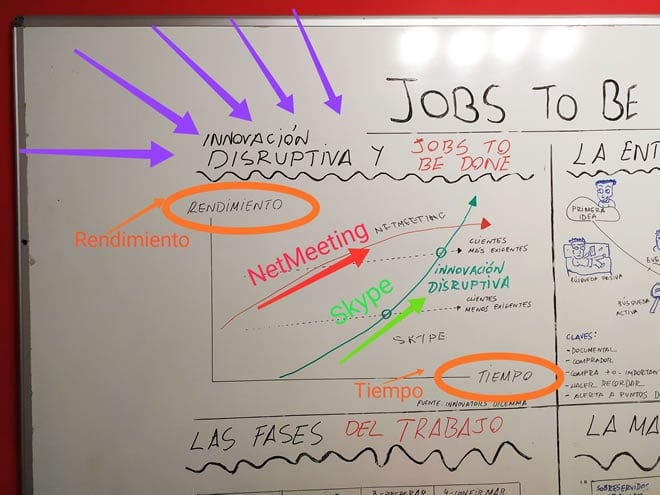 JOBS TO BE
INNOVACIÓN
DISRUPTIVA Y JOBS TO
BE DONE
RENDIMIENTO
Rendimiento
NETMEETING
NetMeeting
CLIENTES
MÁS EXIGENTES
INNOVACIÓN
DISRUPTIVA
Skype
CLIENTES
MENOS EXIGENTES
SKYPE
Tiempo
TIEMPO
FUENTE: INNOVATORS DILEMMA
LA ENT
PRIMERA
IDEA
EVE
BÚSQUEDA PASIVA
BÚSQUEDA
ACTIVA
CLAVES:
- DOCUMENTAL
- COMPRADOR
- COMPRA +O- IMPORTAN
- HACER RECORDAR
- ACIERTA A PUNTOS D
LAS FASES DEL TRABAJO
LA MA
3-PREPARAR
4-CONFIRMAR
SOBRESERVIDOS